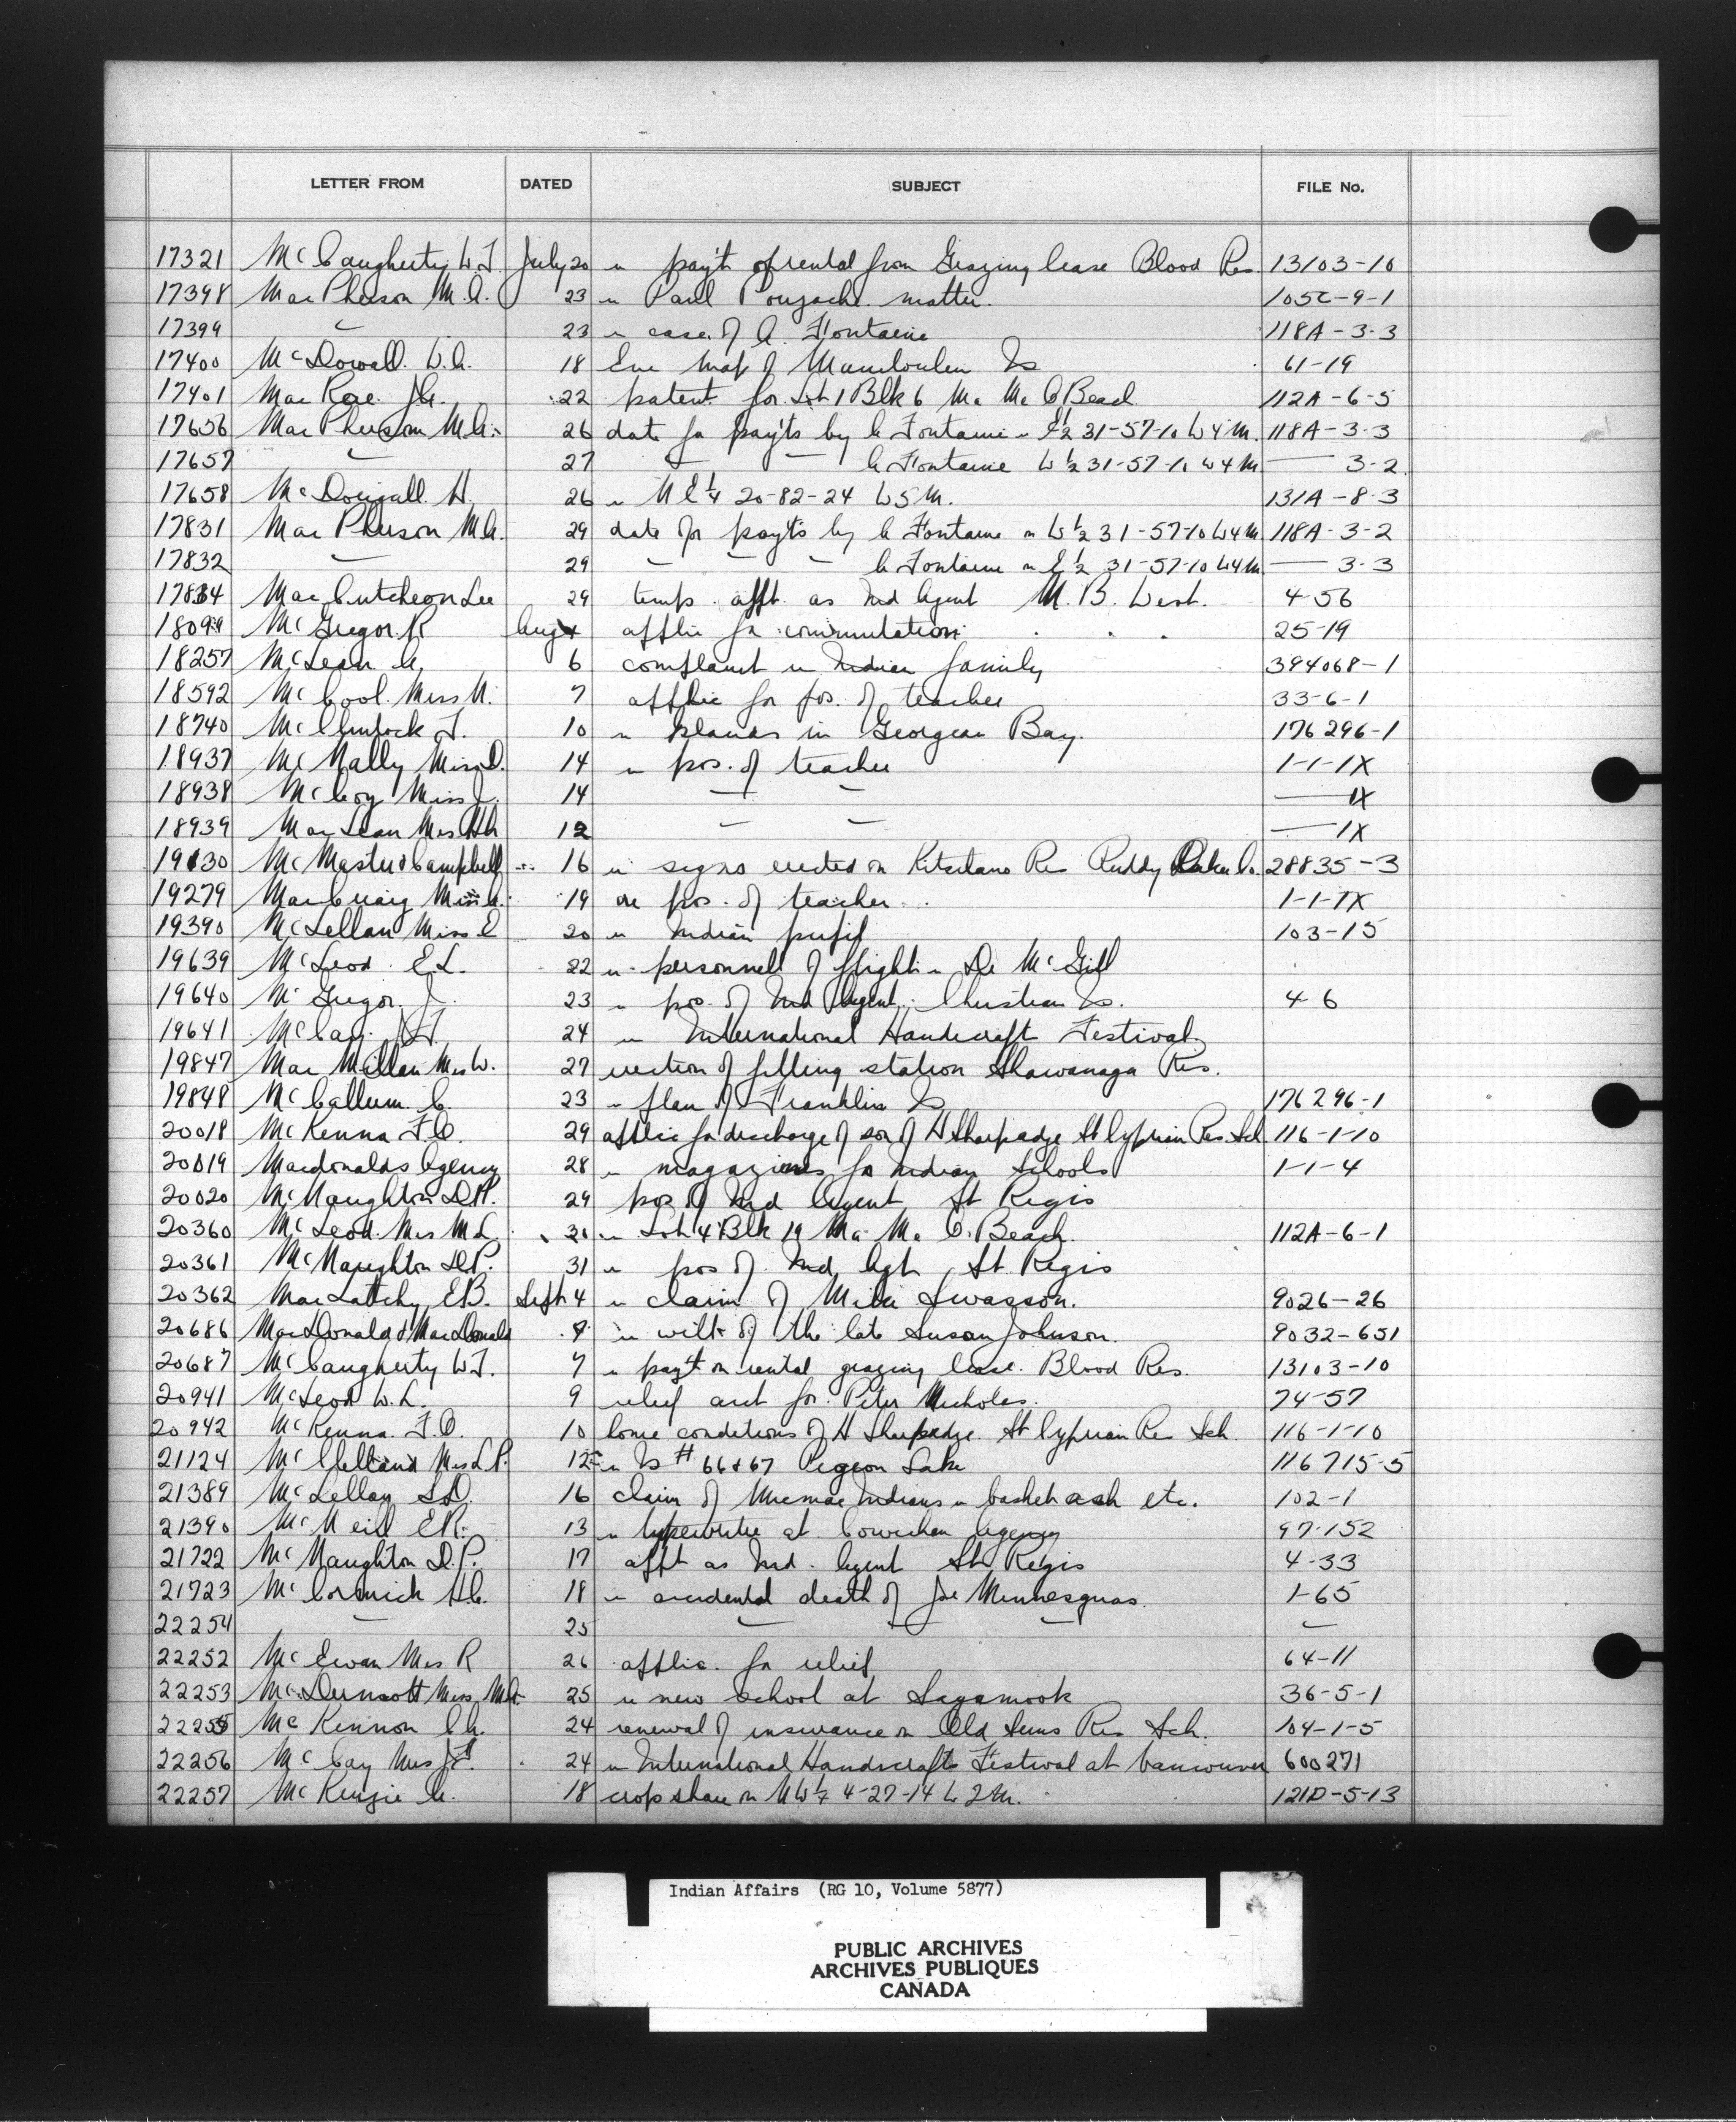 LETTER FROM DATED SUBJECT FILE No.
17321 McCaugherty W.J. July 20 re pay't of rental from Grazing lease Blood Res 13103-10
17398 MacPherson M.A. 23 re Paul matter. 105C-9-1
17399 " 23 re case of A. Fontaine 118A-3-3
17400 McDowall. W.A. 18 map of Manitoulin Is 61-19
17401 MacRae. J.A. 22 patent for Lot 1 Blk 6 Ma Me O Beach 112A-6-5
17656 MacPherson M.A. 26 date for pay'ts by A Fontaine re E½ 31-57-10 W4M. 118A-3-3
17657 " 27 " " A Fontaine W½ 31-57-10 W4M — 3-2
17658 McDougall. H. 26 re NE¼ 20-82-24 W5M. 131A-8-3
17831 MacPherson M.A. 29 date for pay'ts by A Fontaine on W½ 31-57-10 W4M 118A-3-2
17832 — 29 — — — A Fontaine on E½ 31-57-10 W4M — 3-3
17834 MacCutcheon Lee 29 temp. appt. as Ind Agent M.B. West. 4-56
18099 McGregor. R Aug 4 applic for commutation 25-19
18257 McLean A. 6 complaint re Indian family 394068-1
18592 McCool. Miss N. 7 applic for pos. of teacher 33-6-1
18740 McClintock J. 10 re Islands in Georgian Bay. 176296-1
18937 McNally Miss D. 14 re pos. of teacher 1-1-1X
18938 McCoy Miss J. 14 — — — 1X
18939 MacLean Mrs 12 — — — 1X
19130 McMaster & Campbell 16 re signs erected on Kitsilano Res Ruddy Co. 28835-3
19279 MacCuaig Miss A. 19 re pos. of teacher 1-1-1X
19390 McLellan Miss E 20 re Indian pupil 103-15
19639 McLeod. E.L. 22 re personnell of flight re Dr McGill
19640 McGregor J. 23 re pos. of Ind Agent. Christian Is. 4 6
19641 McCay. J.F. 24 re International Handicraft Festival.
19847 MacMillan Mrs W. 27 erection of filling station Shawanaga Res.
19848 McCallum. C. 23 re plan of Franklin Is 176296-1
20018 McKenna F.O. 29 applic for discharge of son of H Sharpedge St Cyprian Res. Sch 116-1-10
20019 Macdonalds Agency 28 re magazines for Indian Schools 1-1-4
20020 McNaughton D.P. 29 pos of Ind Agent St Regis
20360 McLeod. Mrs M.L. 31 re Lot 4 Blk 19 Ma Me O. Beach. 112A-6-1
20361 McNaughton D.P. 31 re pos of. Ind. Agt. St. Regis
20362 MacLatchy E.B. Sept 4 re claim of Mike Swasson. 9026-26
20686 MacDonald & MacDonald 4 re will of the late Susan Johnson. 9032-651
20687 McCaugherty W.J. 7 re pay't on rental grazing lease. Blood Res. 13103-10
20941 McLeod W.L. 9 relief acct for. Peter Nicholas. 74-57
20942 McKenna. F.O. 10 home conditions of H Sharpedge. St Cyprian Res Sch. 116-1-10
21124 McClelland Mrs L.P. 12 re Is # 66 & 67 Pigeon Lake 116715-5
21389 McLellan S.D. 16 claim of Micmac Indians re basket ash etc. 102-1
21390 McNeill E.R. 13 re typewriter at Cowichan Agency 97-152
21722 McNaughton D.P. 17 appt as Ind. Agent St Regis 4-33
21723 McCormick H.C. 18 re accidental death of Joe Minnesquas. 1-65
22254 — 25 — — —
22252 McEwan Mrs R 26 applic. for relief 64-11
22253 McDermott Miss 25 re new school at Sagamook 36-5-1
22255 McKinnon C.A. 24 renewal of insurance on Old Suns Res Sch. 104-1-5
22256 McCay Mrs J.F. 24 re International Handicrafts Festival at Vancouver 600271
22257 McKenzie A. 18 crop share on NW¼ 4-27-14 W2M. 121D-5-13
Indian Affairs (RG 10, Volume 5877)
PUBLIC ARCHIVES
ARCHIVES PUBLIQUES
CANADA